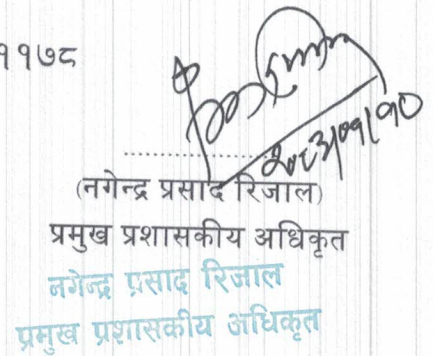 ११७८
(नगेन्द्र प्रसाद रिजाल)
प्रमुख प्रशासकीय अधिकृत
नगेन्द्र प्रसाद रिजाल
प्रमुख प्रशासकीय अधिकृत